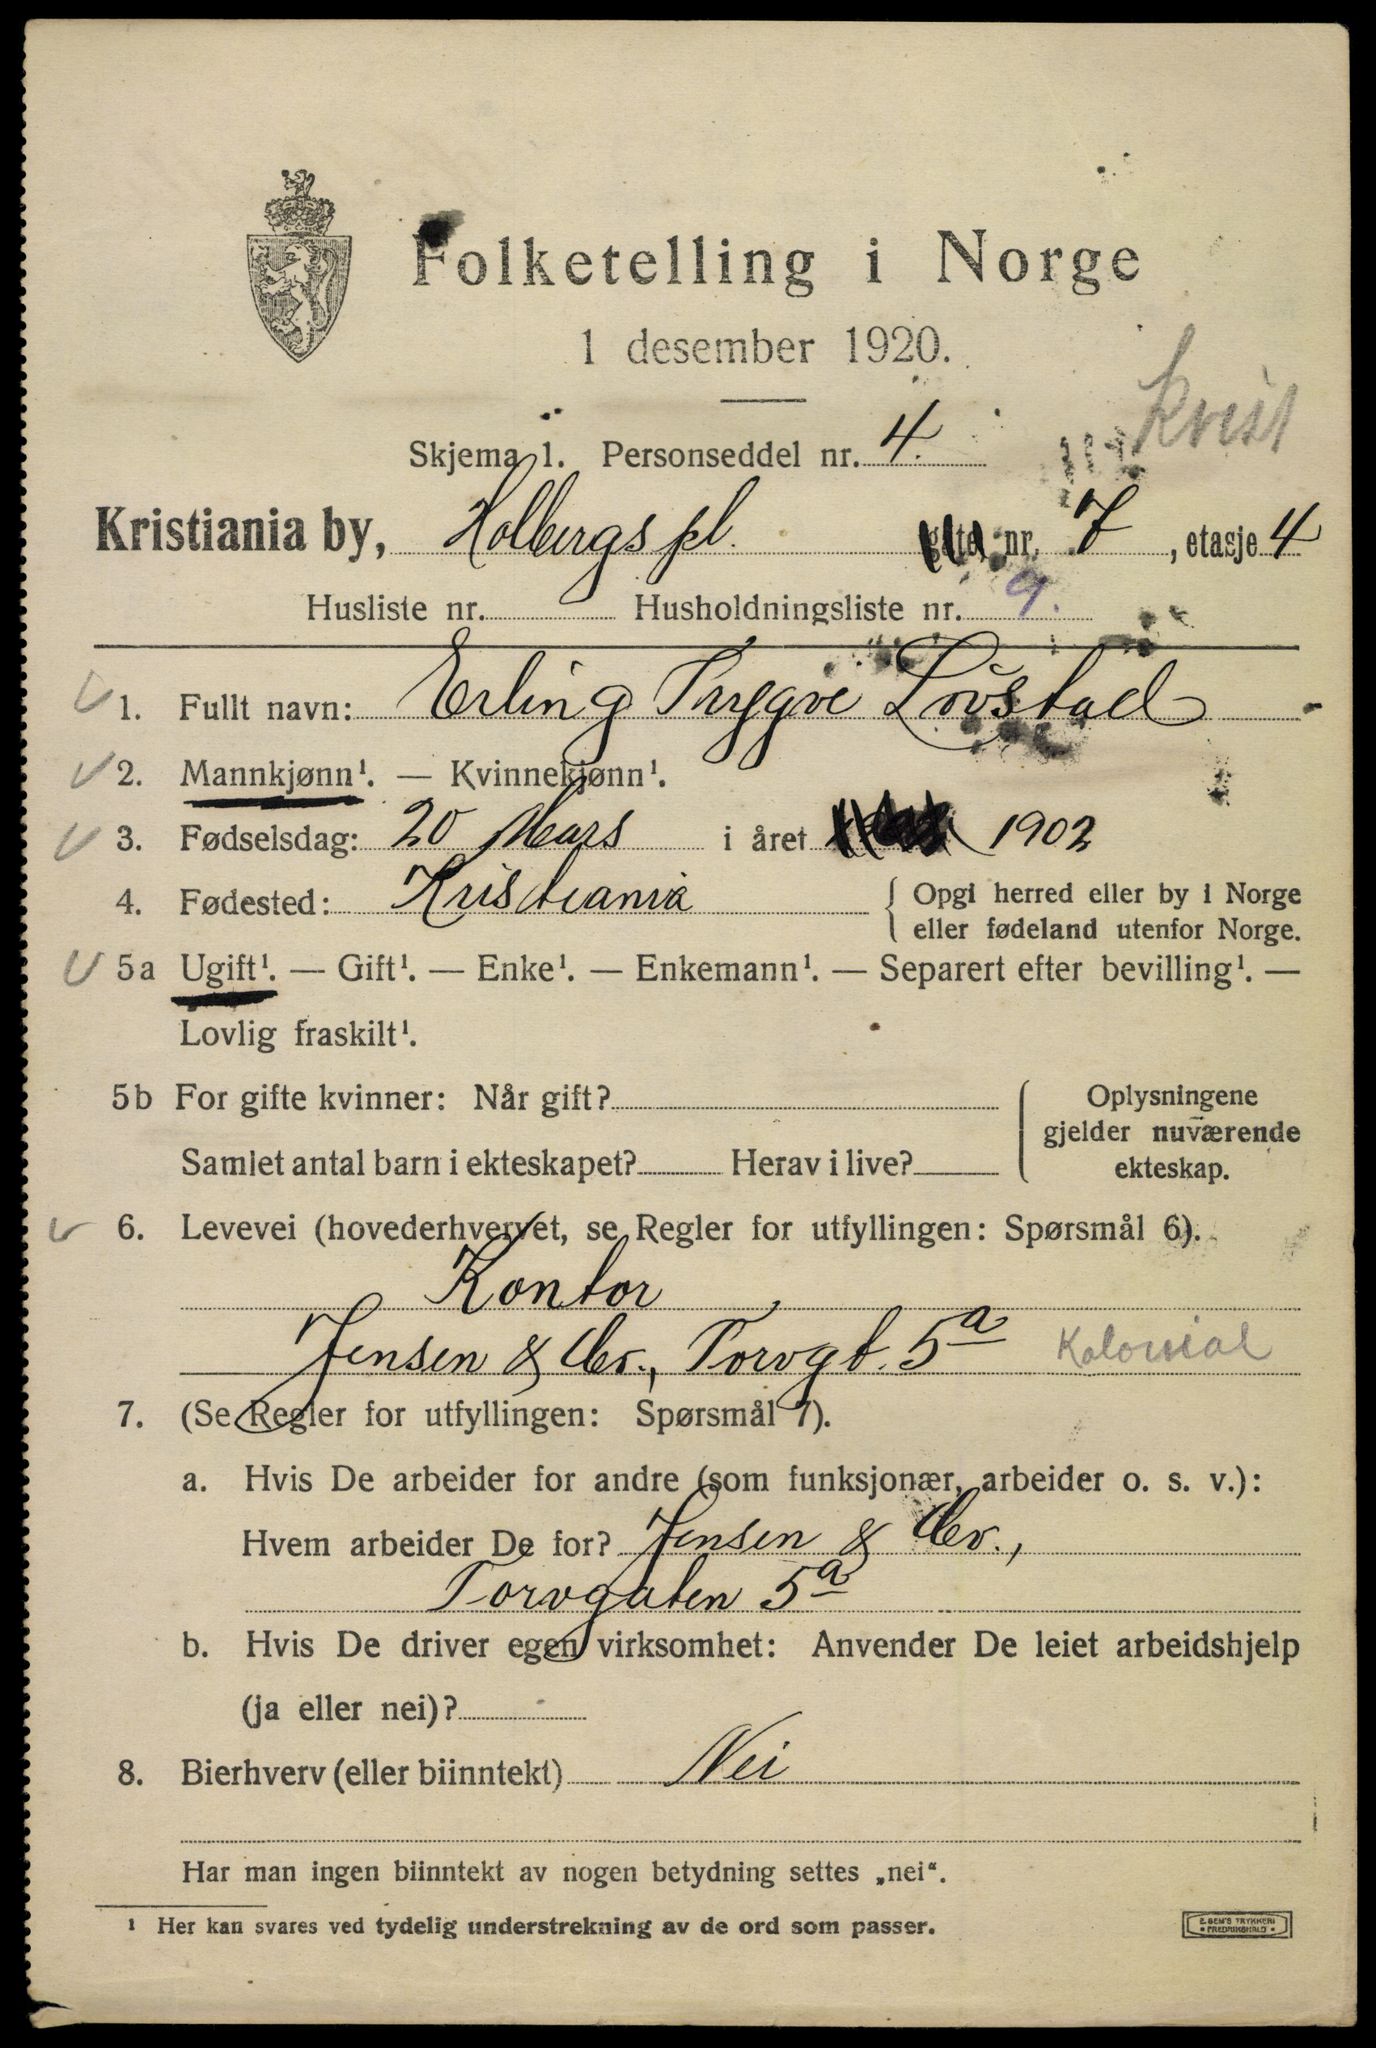 Folketelling i Norge
1 desember 1920.
Kvist
Skjema 1. Personseddel nr. 4.
Kristiania by, Holbergs pl. gate, nr. 7, etasje 4
Husliste nr. Husholdningsliste nr. 9.
1. Fullt navn: Erling Trygve Lövstad
2. Mannkjønn¹. — Kvinnekjønn¹.
3. Fødselsdag: 20 Mars i året 1902
4. Fødested: Kristiania { Opgi herred eller by i Norge
eller fødeland utenfor Norge.
5a Ugift¹. — Gift¹. — Enke¹. — Enkemann¹. — Separert efter bevilling¹. —
Lovlig fraskilt¹.
5b For gifte kvinner: Når gift? Oplysningene
gjelder nuværende
Samlet antal barn i ekteskapet? Herav i live? ekteskap.
6. Levevei (hovederhvervet, se Regler for utfyllingen: Spørsmål 6).
Kontor
Jensen & Co., Torvgt. 5a Kolonial
7. (Se Regler for utfyllingen: Spørsmål 7).
a. Hvis De arbeider for andre (som funksjonær, arbeider o. s. v.):
Hvem arbeider De for? Jensen & Co.,
Torvgaten 5a
b. Hvis De driver egen virksomhet: Anvender De leiet arbeidshjelp
(ja eller nei)?
8. Bierhverv (eller biinntekt) Nei
Har man ingen biinntekt av nogen betydning settes „nei“.
¹ Her kan svares ved tydelig understrekning av de ord som passer.
E. SEM'S TRYKKERI
• FREDRIKSHALD •